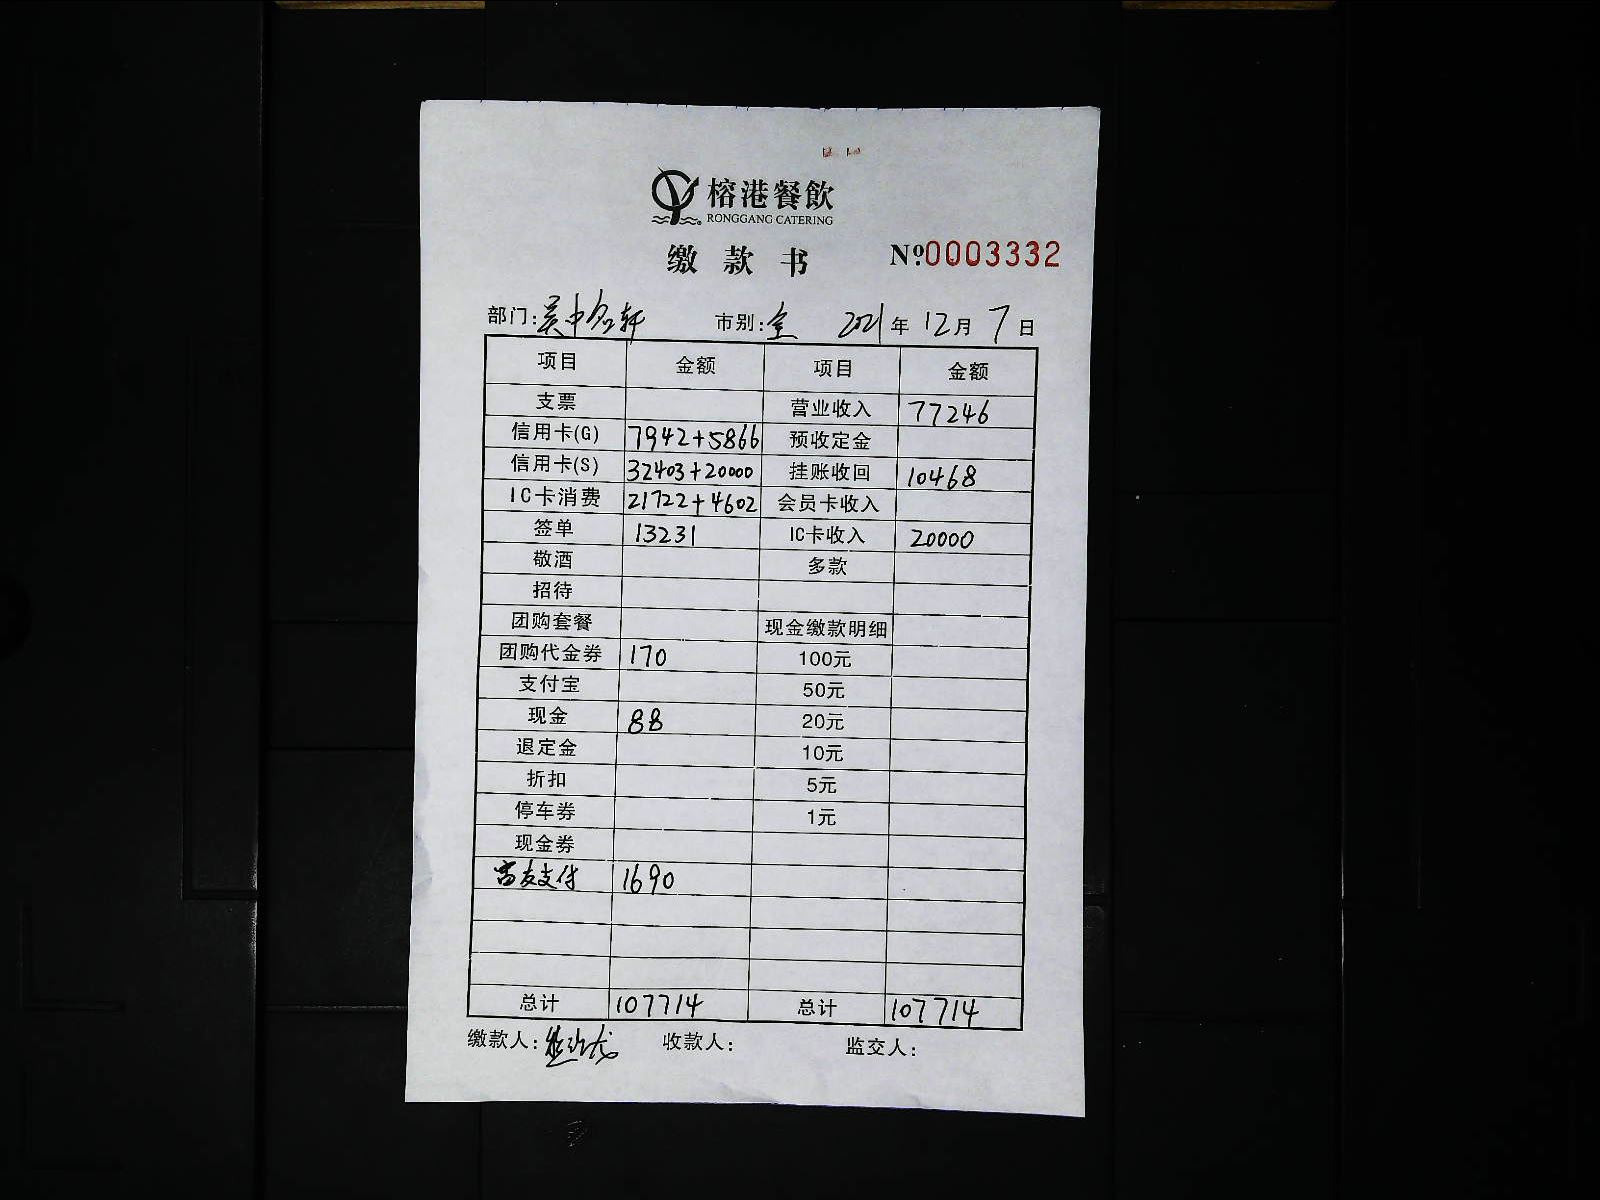 榕港餐飲
RONGGANG CATERING
缴款书 №0003332
部门:吴中名轩 市别:全 2021年12月7日
项目 金额 项目 金额
支票 营业收入 77246
信用卡(G) 7942+5866 预收定金
信用卡(S) 32403+20000 挂账收回 10468
IC卡消费 21722+4602 会员卡收入
签单 13231 IC卡收入 20000
敬酒 多款
招待
团购套餐 现金缴款明细
团购代金券 170 100元
支付宝 50元
现金 88 20元
退定金 10元
折扣 5元
停车券 1元
现金券
商友支付 1690
总计 107714 总计 107714
缴款人: 收款人: 监交人: